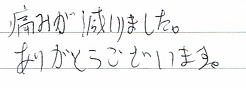 痛みが減りました。
ありがとうございます。